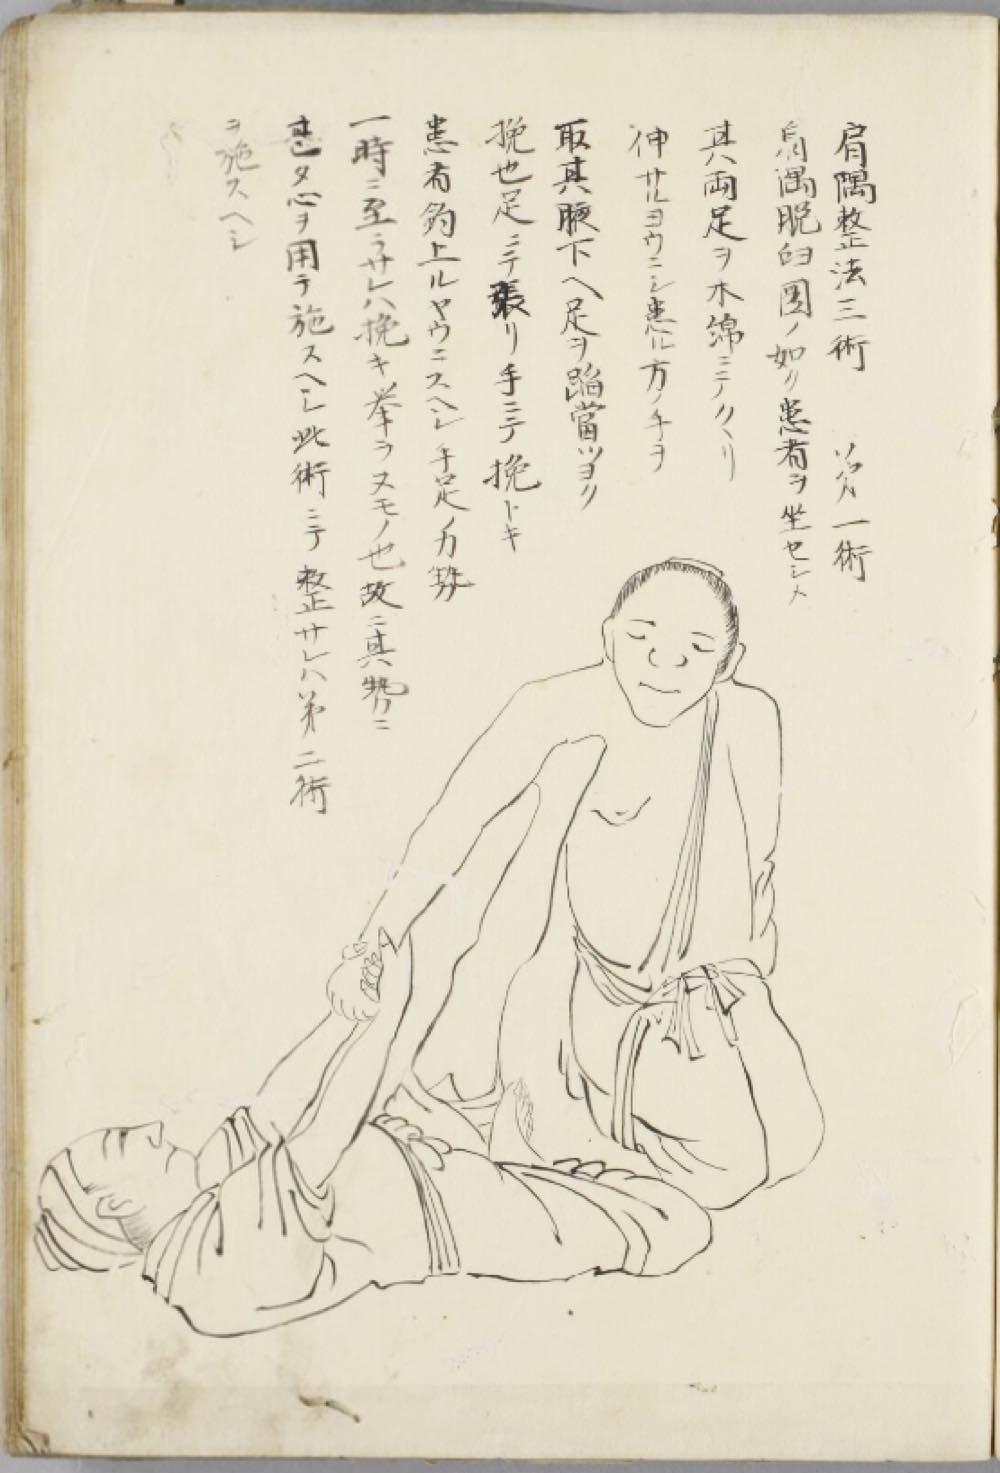 肩隅整法三術 ソノ一術
肩隅脱臼圖ノ如ク患者ヲ坐セシメ
其両足ヲ木綿ニテククリ
伸サルヨウニシ患ル方ノ手ヲ
取其腋下ヘ足ヲ蹈當ツヨク
挽也足ニテ張リ手ニテ挽トキ
患者釣上ルヤウニスヘシ手足ノ力勢
一時ニ至ラサレハ挽キ挙ラヌモノ也故ニ其勢ニ
甚タ心ヲ用テ施スヘシ此術ニテ整サレハ第二術
ヲ施スヘシ